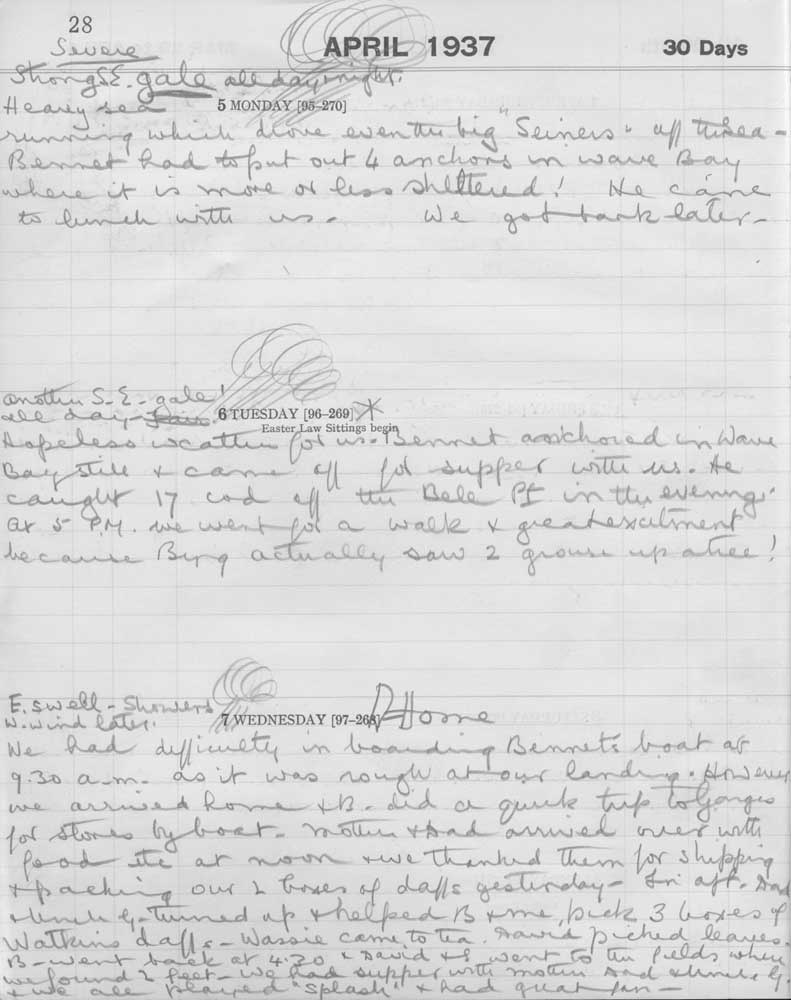 28
Severe
APRIL 1937
30 Days
Strong S.E. gale all day & night.
Heavy sea
5 MONDAY [95-270]
running which drove even the big "Seiners" off the sea -
Bennet had to put out 4 anchors in wave Bay
where it is more or less shelttered! He came
to lunch with us. We got back later -
another S.E. gale!
all day -
6 TUESDAY [96-269]
Easter Law Sittings begin
Hopeless weather for us. Bennet anchored in Wave
Bay still & came off for supper with us. He
caught 17 cod off the Bele Pt in the evening.
at 5 P.M. we went for a walk & great excitment
because Byng actually saw 2 grouse up a tree!
E. swell - Showers
W. wind later.
7 WEDNESDAY [97-268]
Home
We had difficulty in boarding Bennets boat at
9.30 a.m. as it was rough at our landing. However
we arrived home & B. did a quick trip to Ganges
for stores by boat - mother & Dad arrived over with
food etc at noon & we thanked them for shipping
& packing our 2 boxes of daffs yesterday - In aft. Dad
& Uncle G. turned up & helped B & me pick 3 boxes of
Watkins daffs - Wassie came to tea. David picked leaves.
B - went back at 4.30 & David & I went to the fields where
we found 2 feet - We had supper with mother Dad & Uncle G.
& we all played "Splash" & had great fun -